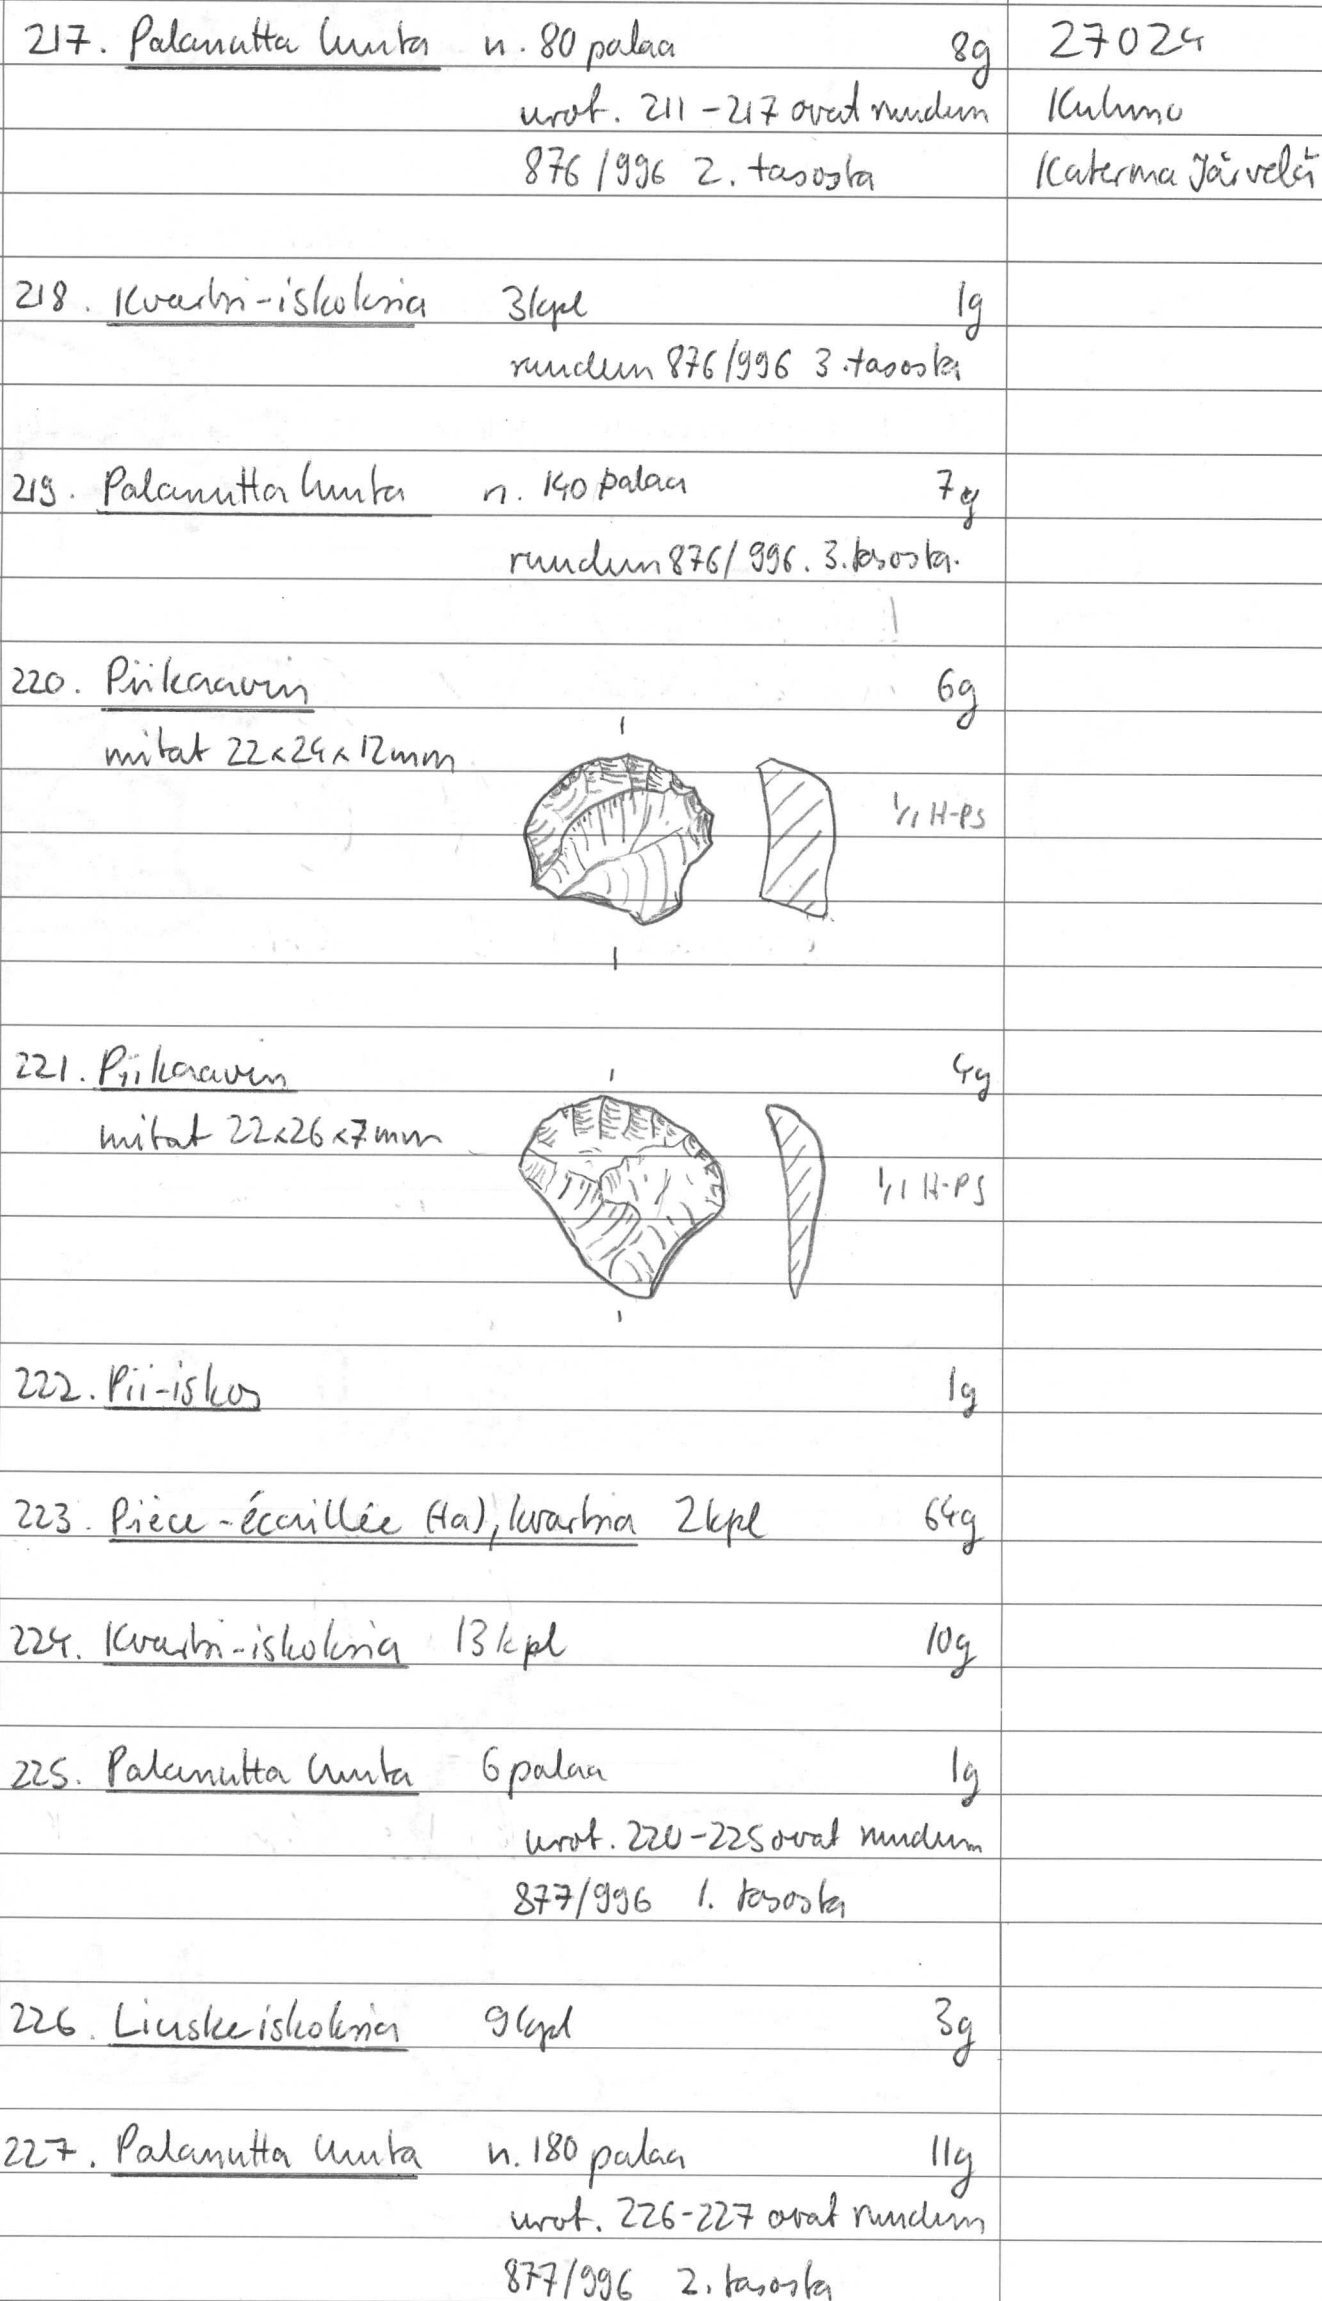 217. Palanutta luuta n. 80 palaa 8g
27024
urot. 211-217 ovat ruudun
Kuhmo
876/996 2. tasosta
Katerma Järvelä
218. Kvartsi-iskoksia 3kpl 1g
ruudun 876/996 3. tasosta
219. Palanutta luuta n. 140 palaa 7g
ruudun 876/996. 3. tasosta.
220. Piikaavin 6g
mitat 22x24x12mm
1/1 H-PS
221. Piikaavin 4g
mitat 22x26x7mm
1/1 H-PS
222. Pii-iskos 1g
223. Pièce-écaillée (ta), kvartsia 2kpl 64g
224. Kvartsi-iskoksia 13kpl 10g
225. Palanutta luuta 6 palaa 1g
urot. 220-225 ovat ruudun
877/996 1. tasosta
226. Liuskeiskoksia 9kpl 3g
227. Palanutta luuta n. 180 palaa 11g
urot. 226-227 ovat ruudun
877/996 2. tasosta